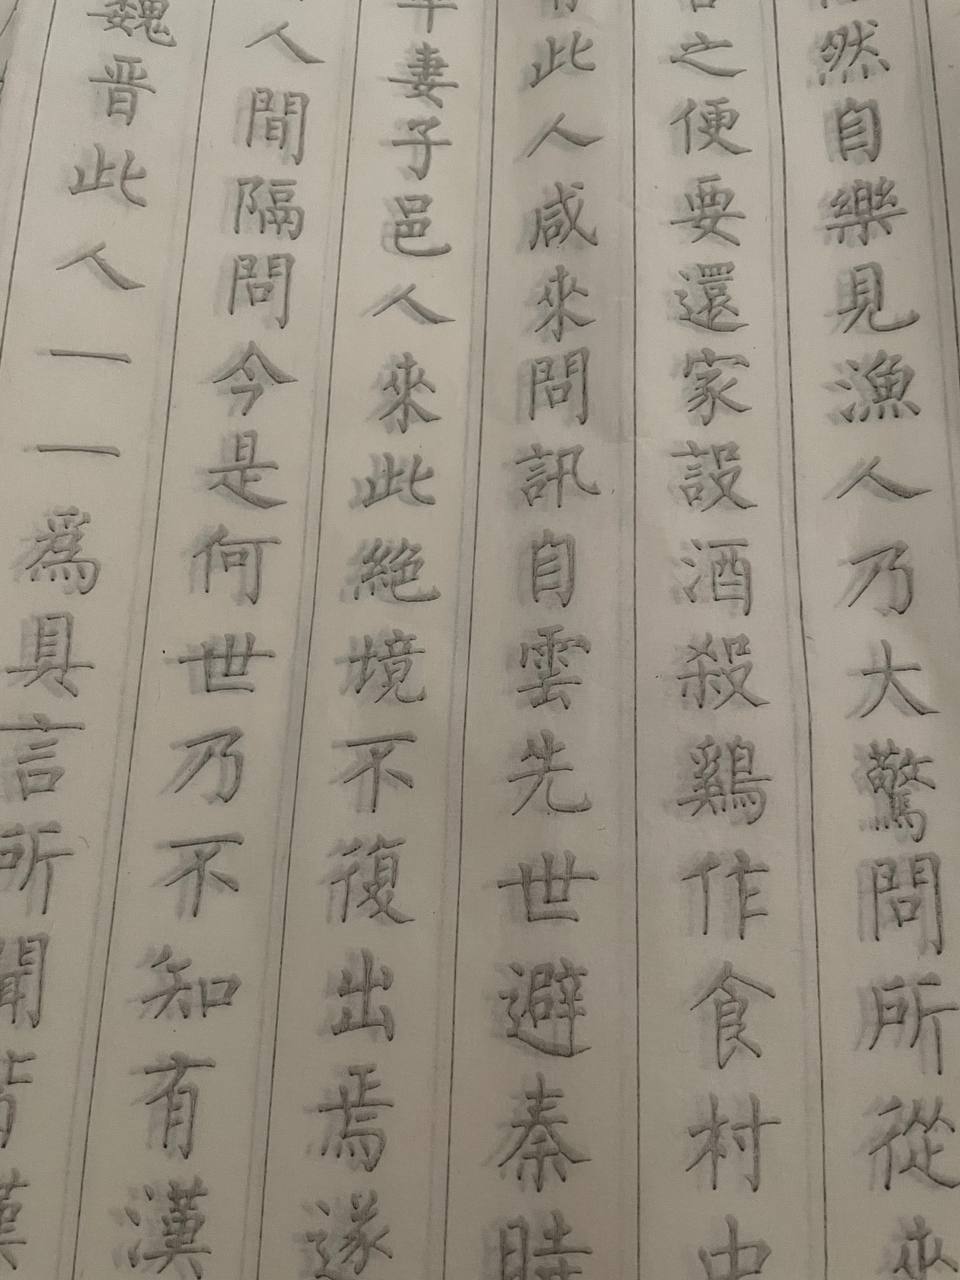 然自樂見漁人乃大驚問所從來
之便要還家設酒殺鷄作食村中
此人咸來問訊自雲先世避秦時
妻子邑人來此絕境不復出焉遂
人間隔問今是何世乃不知有漢
魏晋此人一一爲具言所聞皆漢